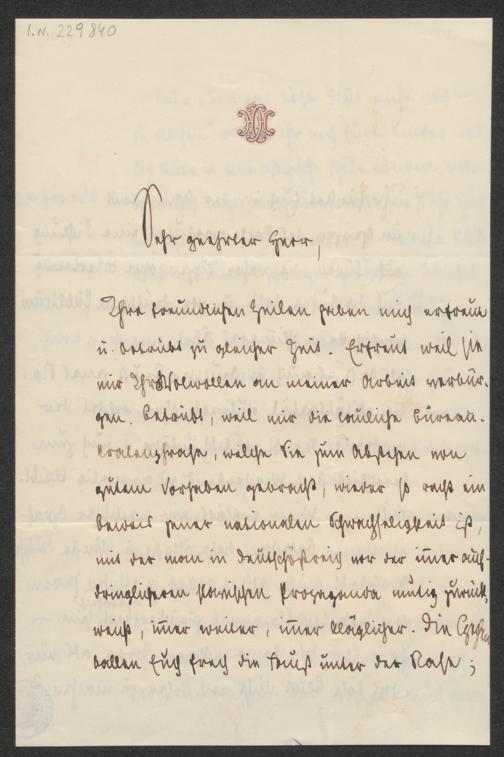 I.N. 229840
Sehr geehrter Herr,
Ihre freundlichen Zeilen haben mich erfreut
u. betrübt zu gleicher Zeit. Erfreut weil sie
mir Ihr Wolwollen an meiner Arbeit verbür-
gen. Betrübt, weil mir die leidliche Bureau-
welche Sie zum Abstehen von
gutem Vorhaben gebracht, wieder so recht ein
Beweis jener nationalen Schwachseligkeit ist,
mit der man in Deutschöstreich vor der immer auf-
dringlicheren slavischen Propaganda mutig zurück-
weicht, immer weiter, immer kläglicher. Die Czechen
ballen Euch frech die Faust unter der Nase;